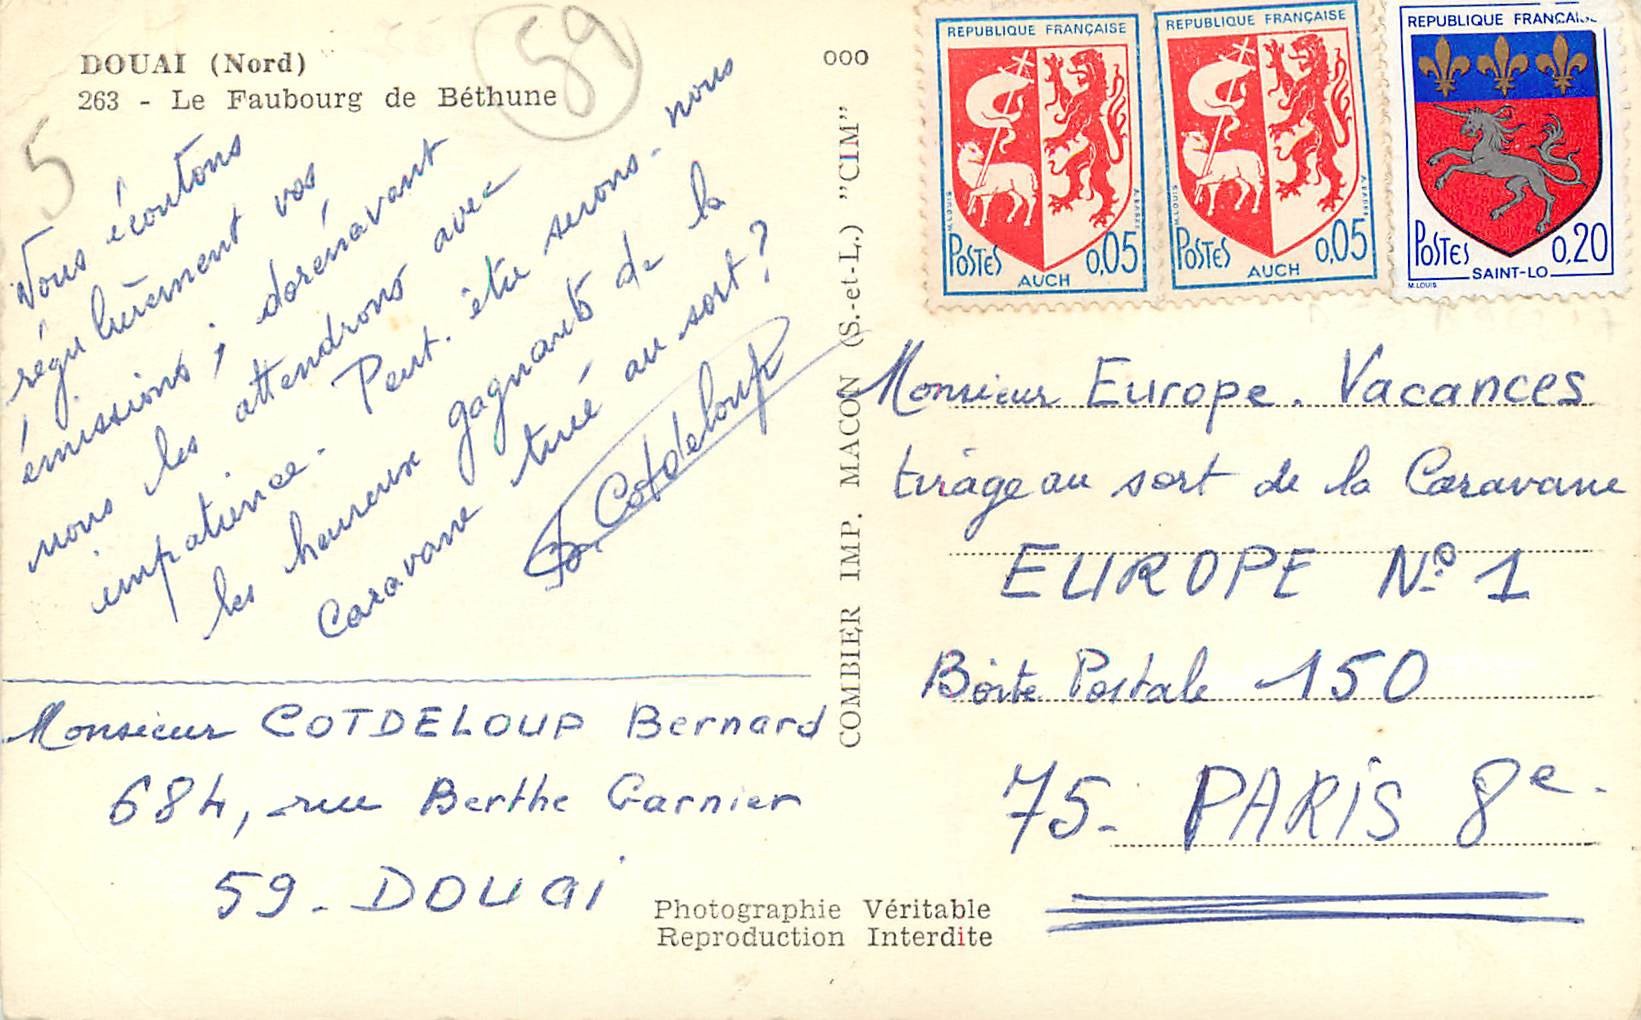 DOUAI (Nord)
263 - Le Faubourg de Béthune
59
5
Vous écoutons
régulièrement vos
émissions ; dorénavant
nous les attendrons avec
impatience. Peut-être serons-nous
les heureux gagnants de la
Caravane tirée au sort ?
B. Cotdeloup
Monsieur COTDELOUP Bernard
684, rue Berthe Garnier
59 - DOUAI
Photographie Véritable
Reproduction Interdite
COMBIER IMP. MACON (S.-et-L.) "CIM"
000
REPUBLIQUE FRANÇAISE
M. LOUIS
POSTES 0,05
AUCH
REPUBLIQUE FRANÇAISE
M. LOUIS
POSTES 0,05
AUCH
REPUBLIQUE FRANÇAI
POSTES 0,20
SAINT-LO
M. LOUIS
Monsieur Europe. Vacances
tirage au sort de la Caravane
EUROPE N° 1
Boite Postale 150
75 - PARIS 8e.